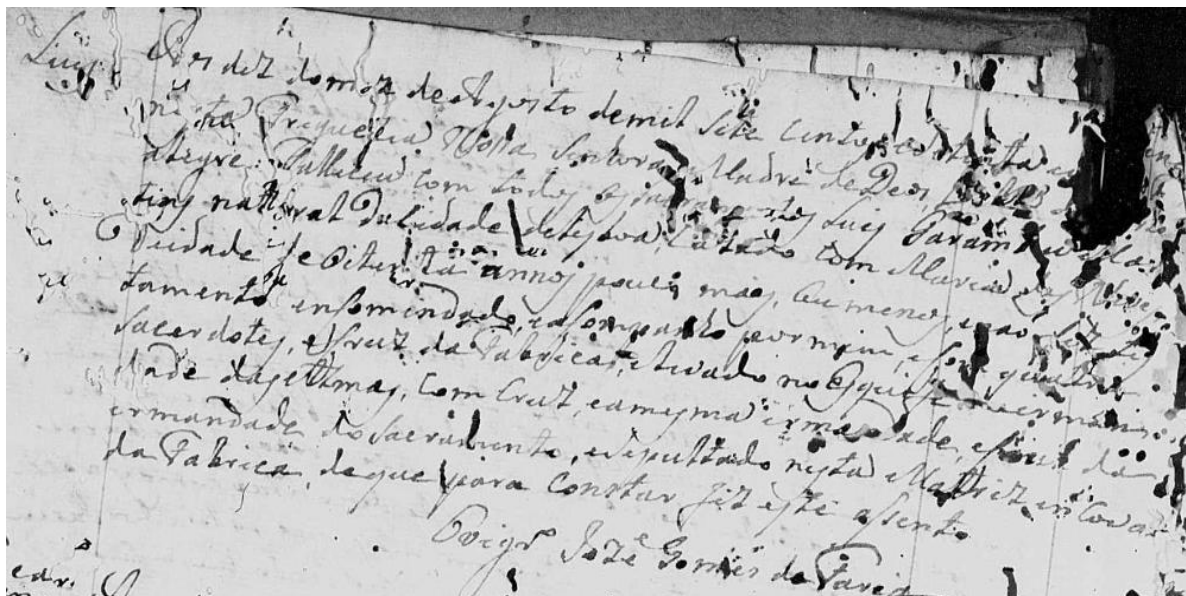 Luis
Aos dez do mez de Agosto de mil sete centos e oitenta
nesta Freguezia Nossa Senhora Madre de Deos
alegre falleceu com todos os Sacramentos Luis
tins natural da Cidade de Lisboa, Cazado com Maria
de idade de oitenta annos pouco mais, ou menos, e não fez tes
tamento, encomendado, e acompanhado por mim, e por quatro
Sacerdotes, e Cruz da Fabrica, e levado no esquife
dade das Almas, com Cruz, e a mesma irmandade, e Cruz da
irmandade do Sacramento, e sepultado nesta Matriz em cova
da Fabrica, de que para constar fiz este assento
O Vigr.o Jozé Gomes de Faria